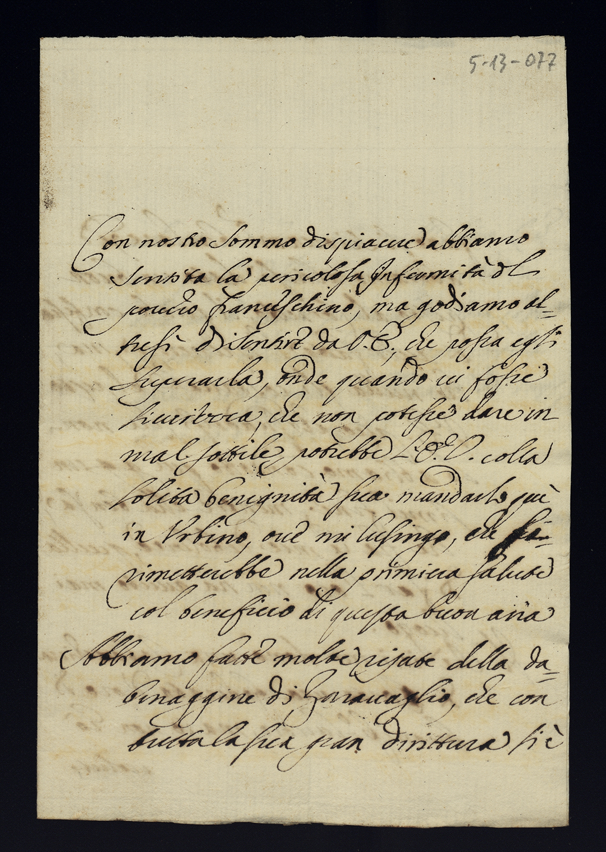 5-13-077
Con nostro sommo dispiacere abbiamo
sentita la pericolosa Infermità del
povero Franceschino, ma godiamo al=
tresì di sentire da V.E., che possa egli
superarla, onde quando vi fosse
sicurezza, che non potesse dare in
mal sottile potrebbe l'E.V. colla
solita benignità sua mandarlo quì
in Urbino, ove mi lusingo, che si
rimetterebbe nella primiera salute
col beneficio di questa buon aria
Abbiamo fatte molte risate della da=
benaggine di Garavaglio, che con
tutta la sua gran dirittura si è